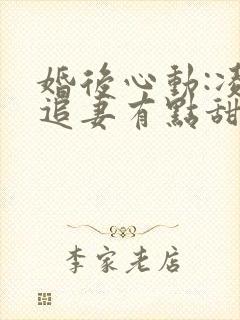 婚後心動:凌
追妻有點甜
李家老店